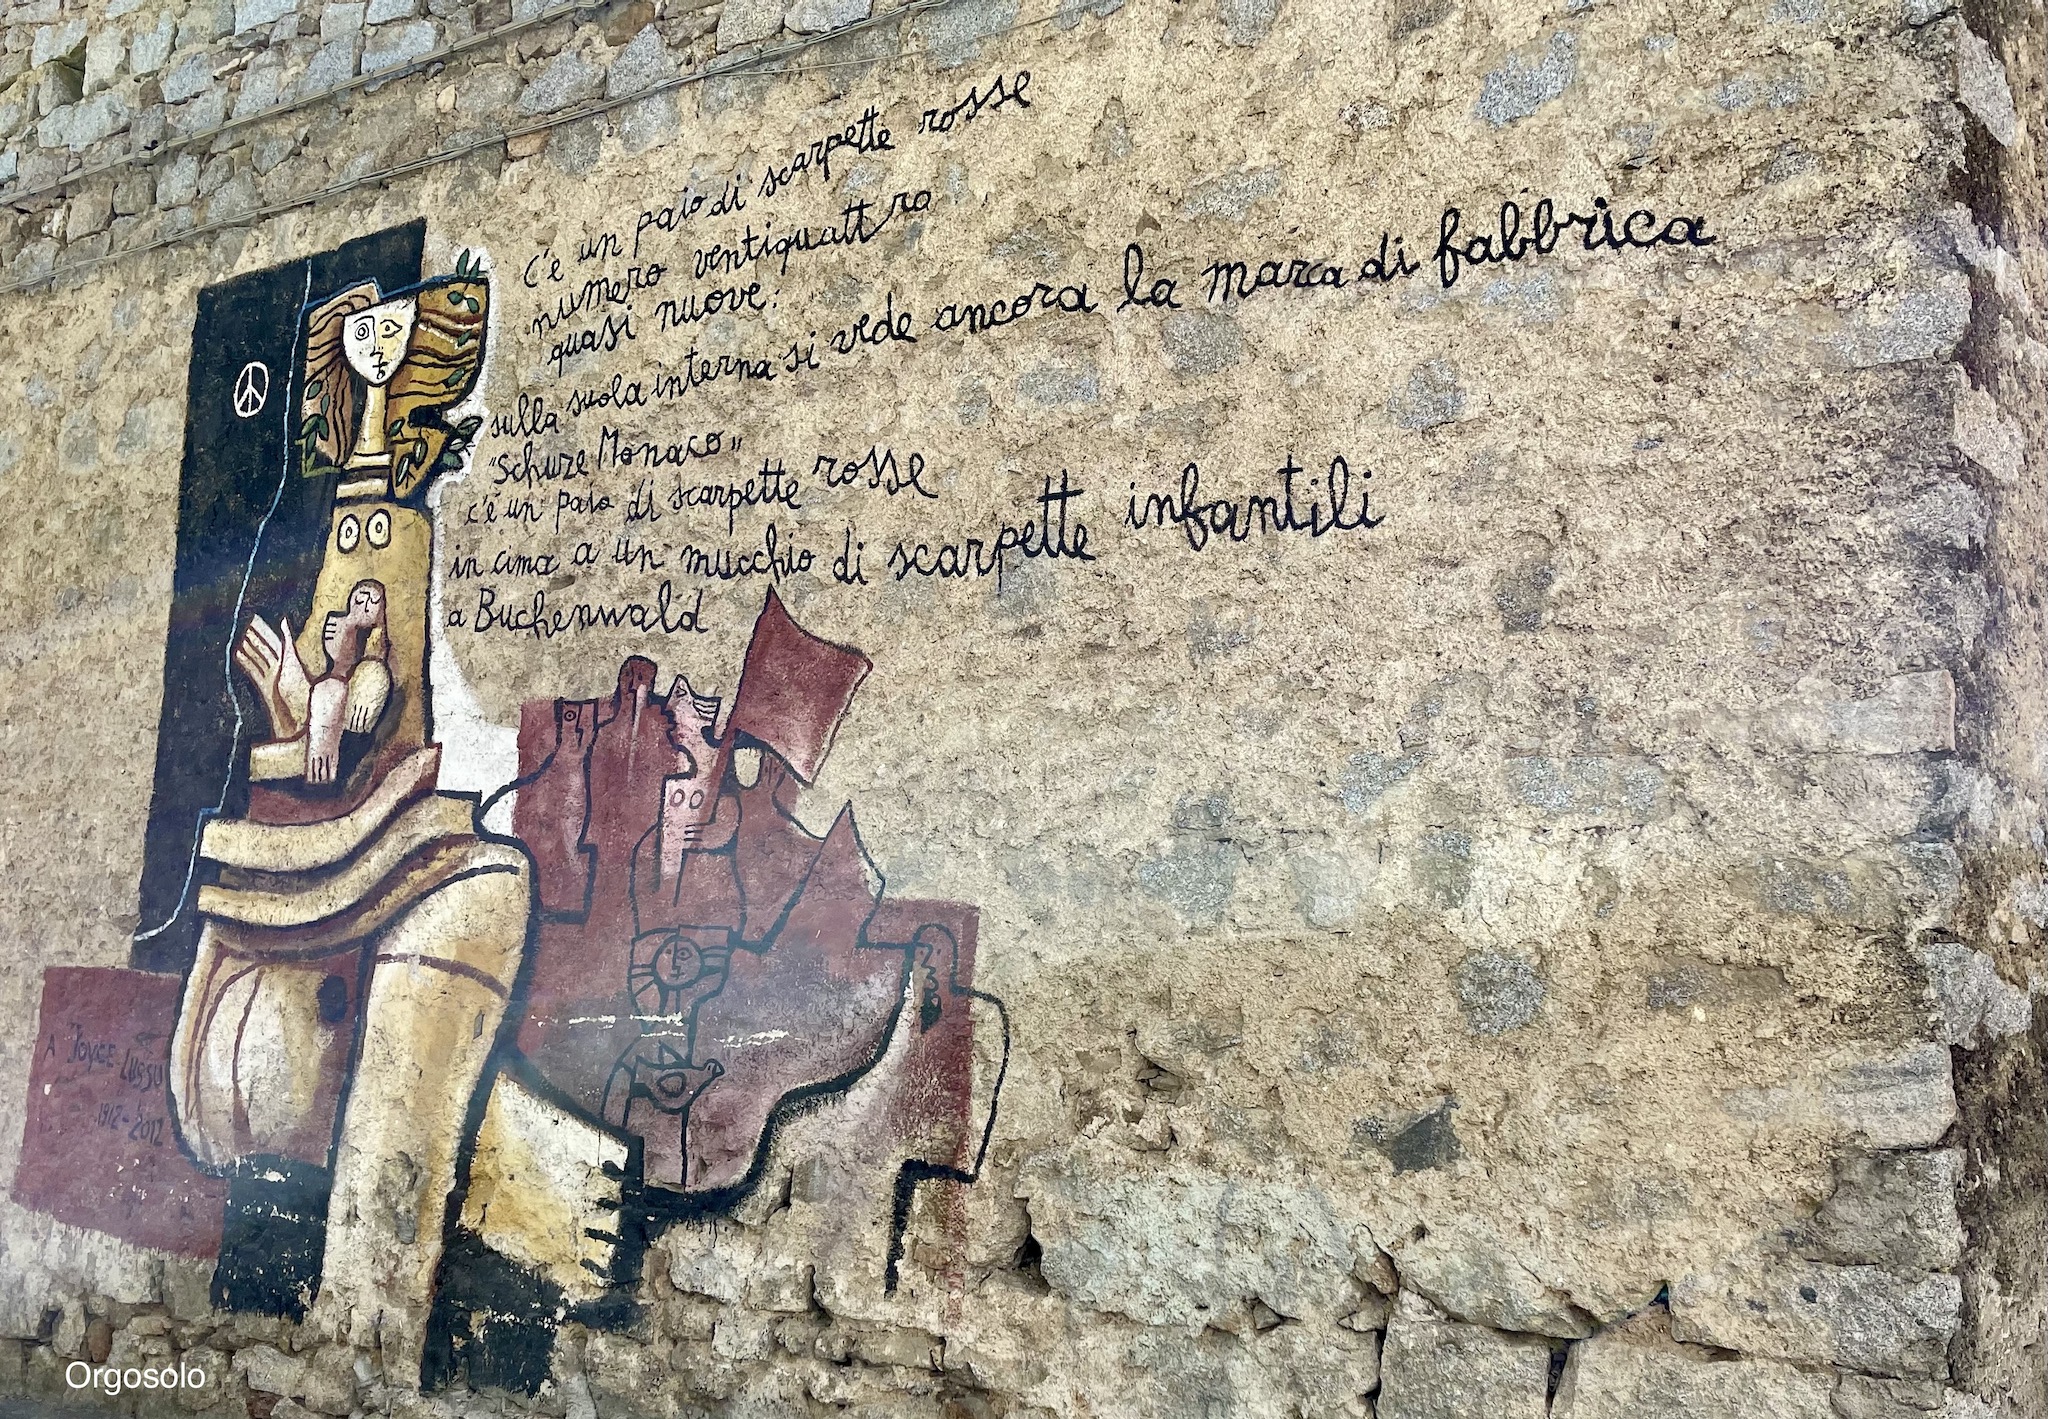 c'è un paio di scarpette rosse
numero ventiquattro
quasi nuove:
sulla suola interna si vede ancora la marca di fabbrica
"Schuze Monaco"
c'è un paio di scarpette rosse
in cima a un mucchio di scarpette infantili
a Buchenwald
A Joyce Lussu
1912-2012
Orgosolo